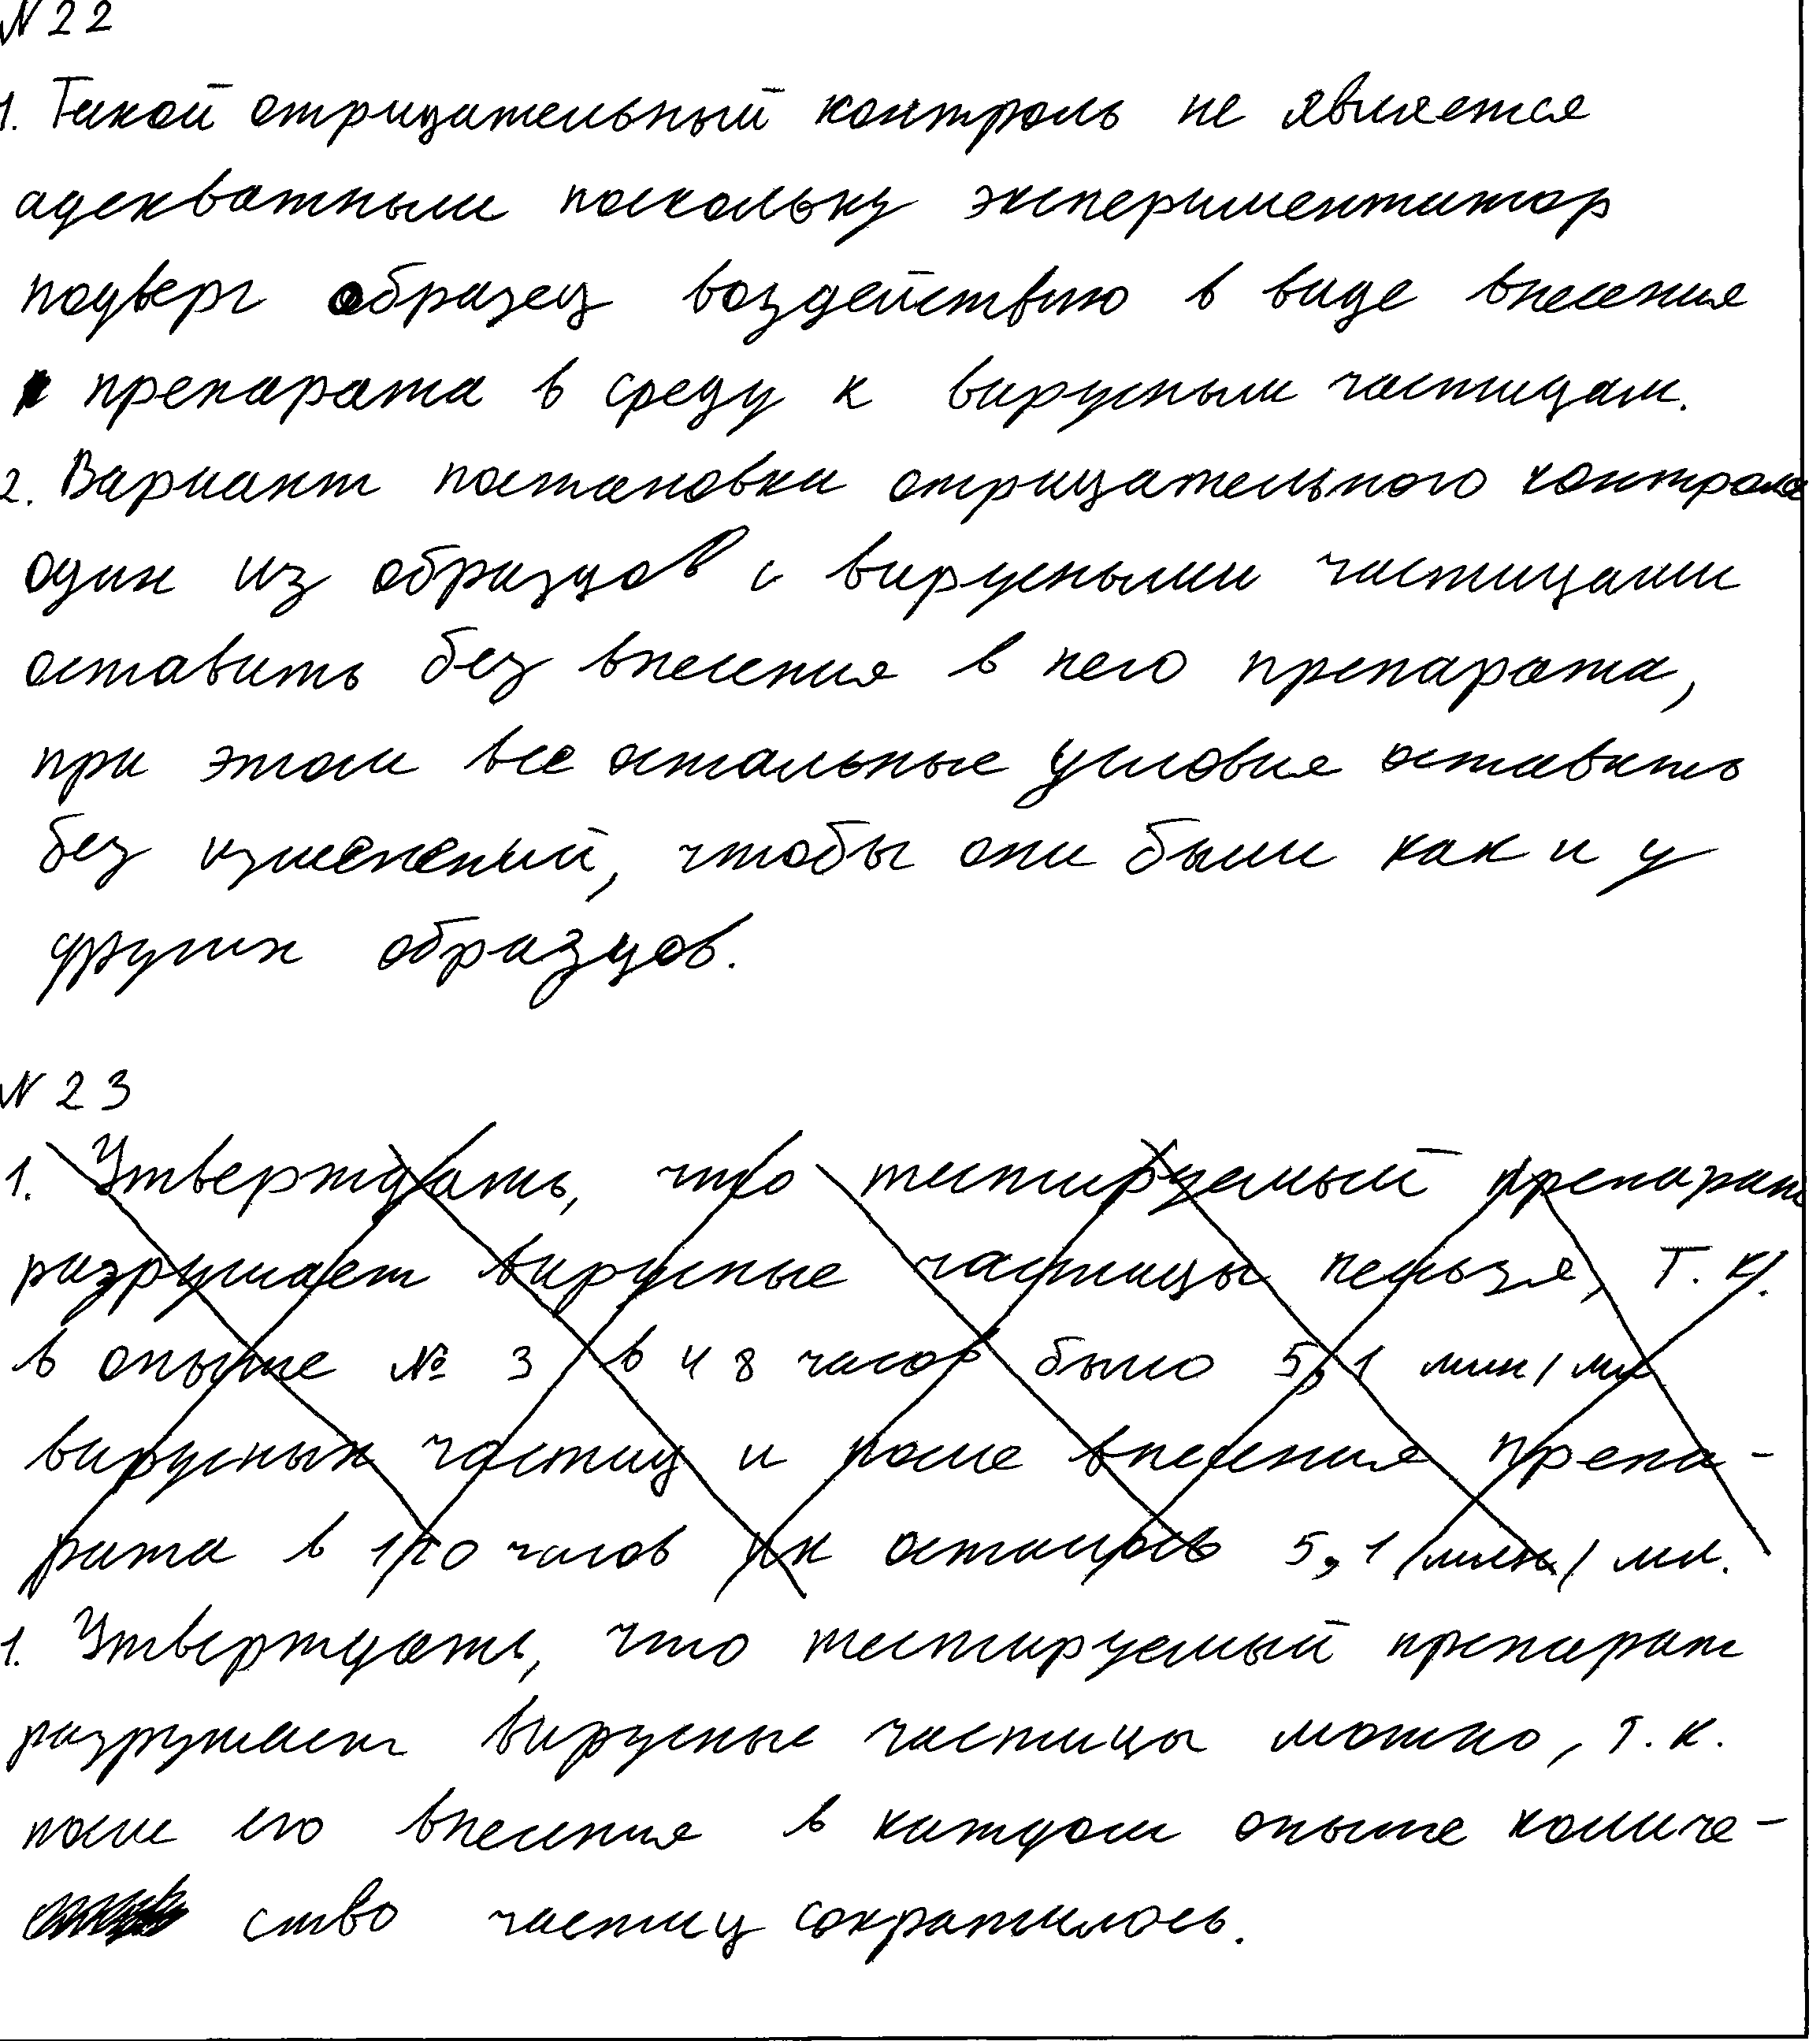 N 22
1. Такой отрицательный контроль не является
адекватным поскольку экспериментатор
подверг образец воздействию в виде внесения
препарата в среду к вирусным частицам.
2. Вариант постановки отрицательного контроля
один из образцов с вирусными частицами
оставить без внесения в него препарата,
при этом все остальные условия оставить
без изменений, чтобы они были как и у
других образцов.
N 23
1. Утверждать, что тестируемый препарат
разрушает вирусные частицы нельзя, т.к.
в опыте № 3 в 48 часов было 5,1 млн/мл
вирусных частиц и после внесения препа-
рата в 120 часов их осталось 5,1 млн/мл.
1. Утверждать, что тестируемый препарат
разрушает вирусные частицы можно, т.к.
после его внесения в каждом опыте количе-
ство частиц сократилось.